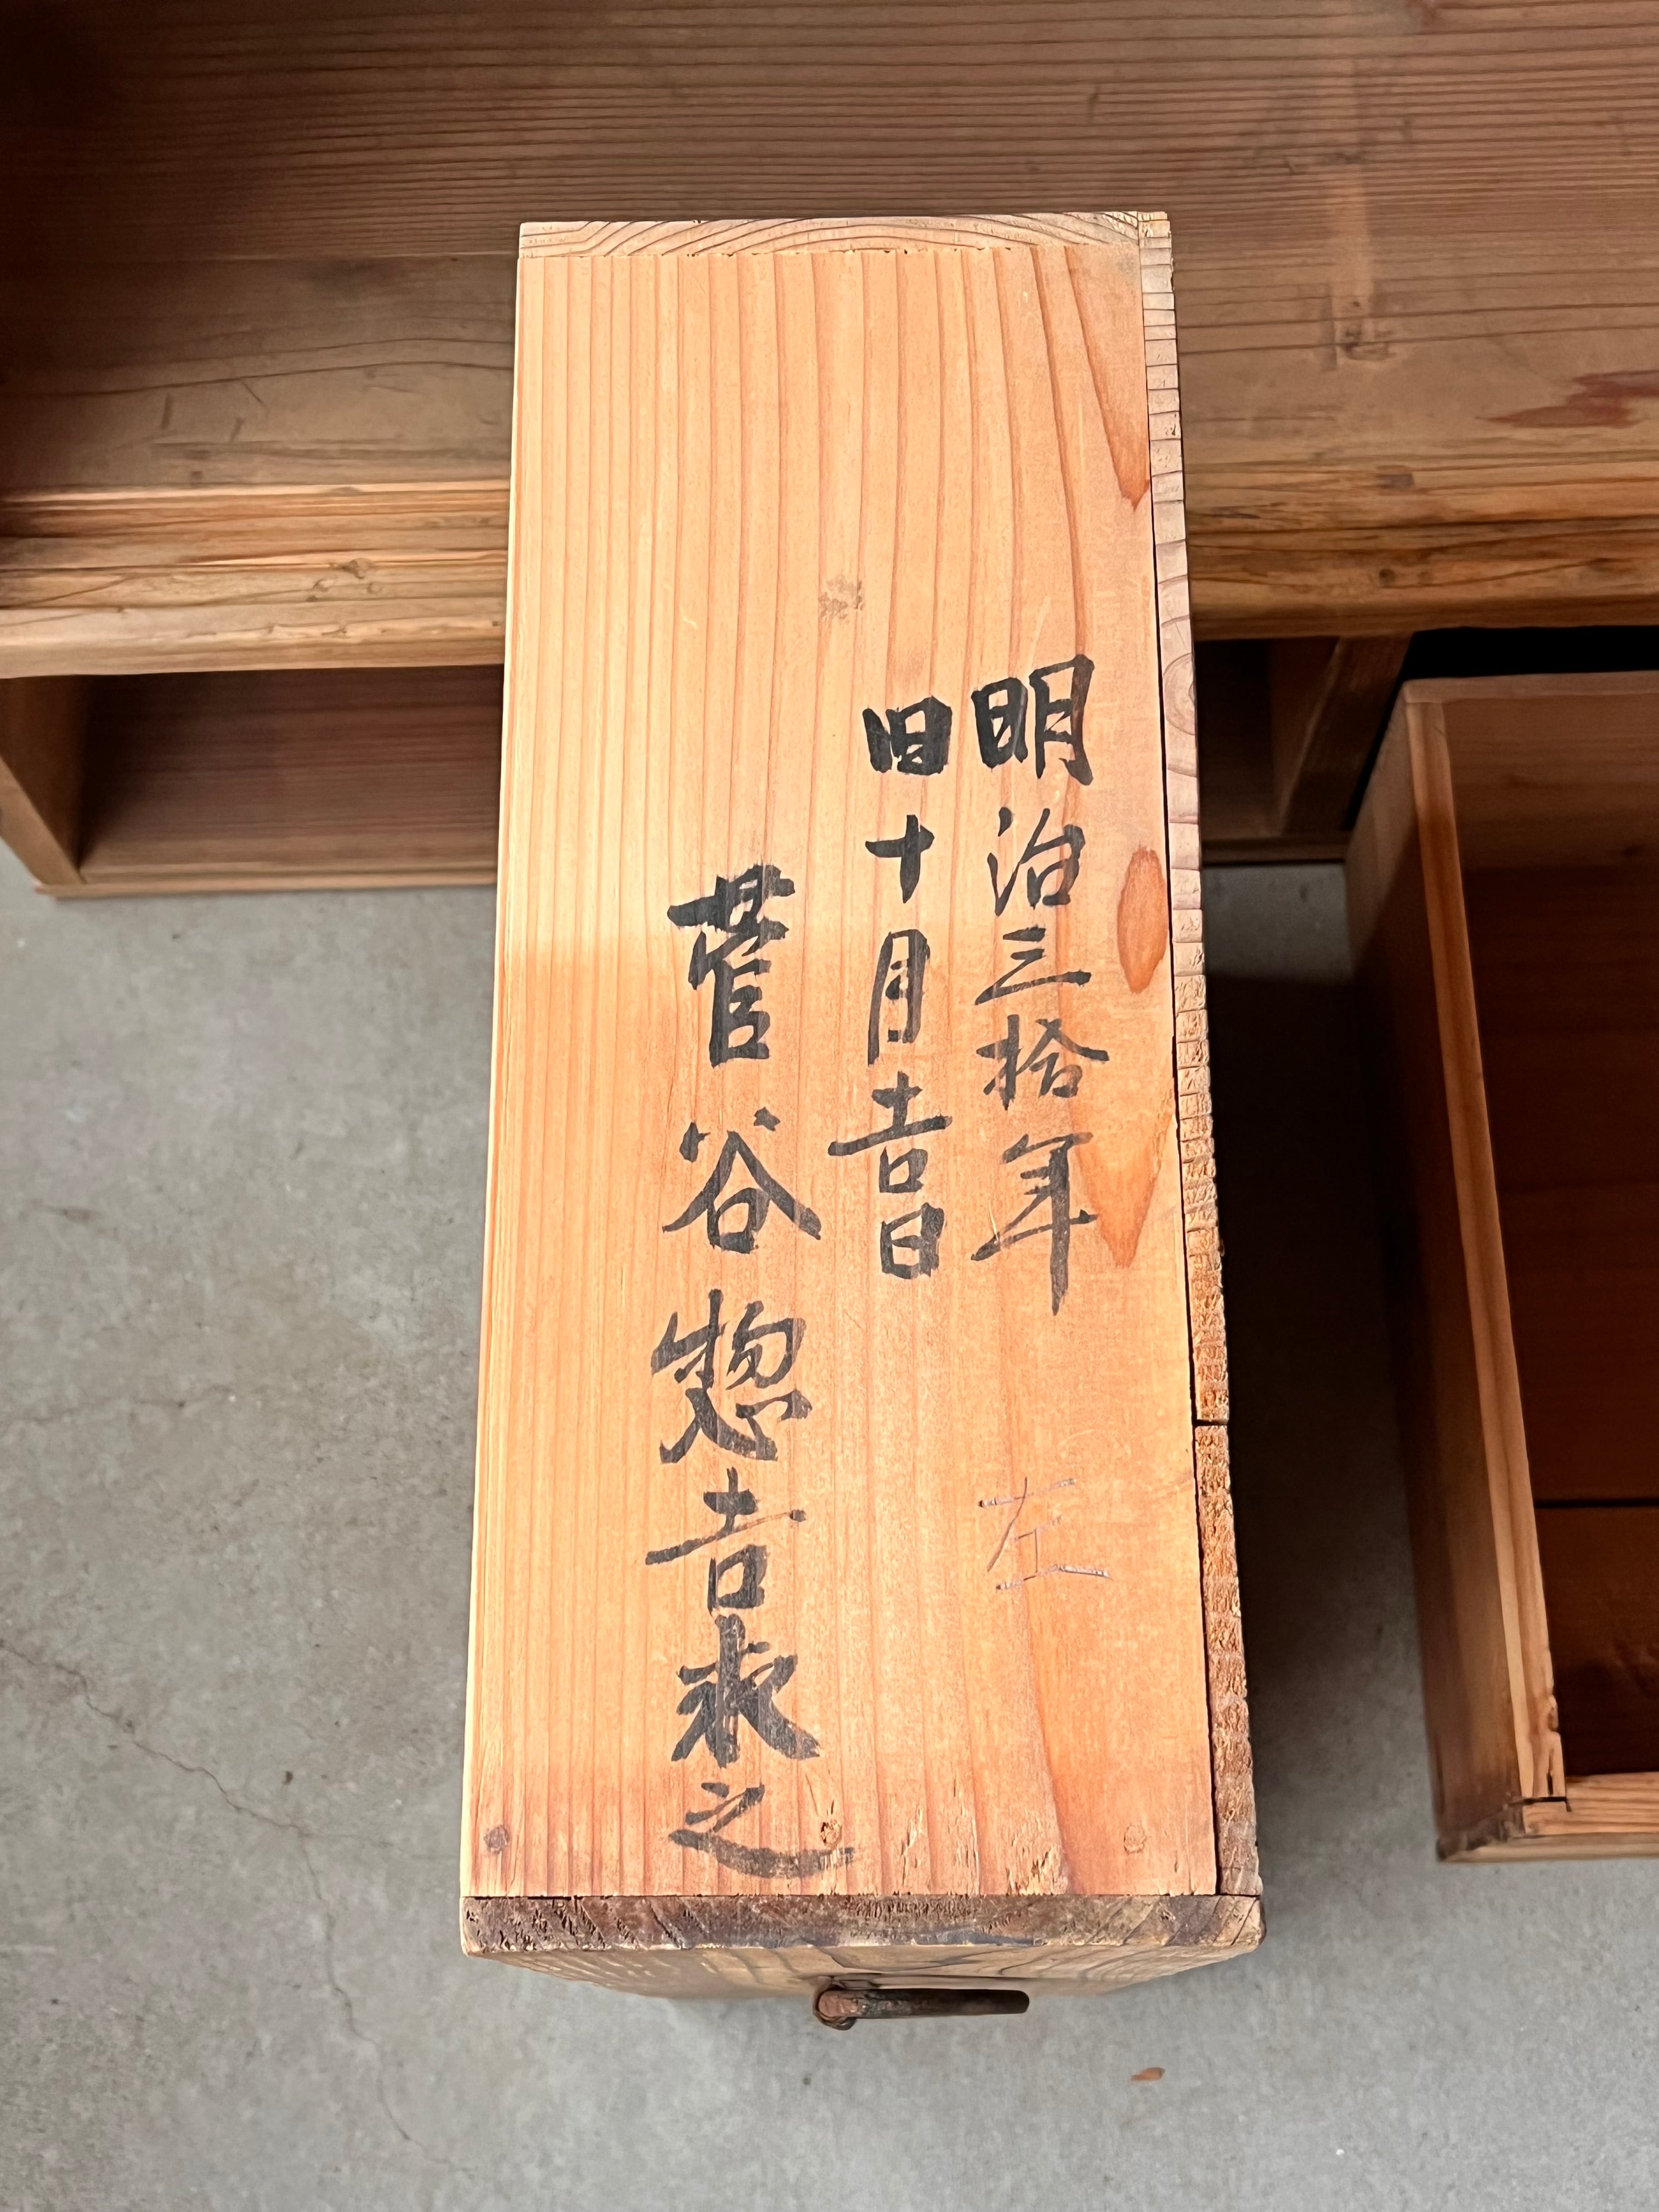 明治三拾年
旧十月吉日
菅谷惣吉求之
左